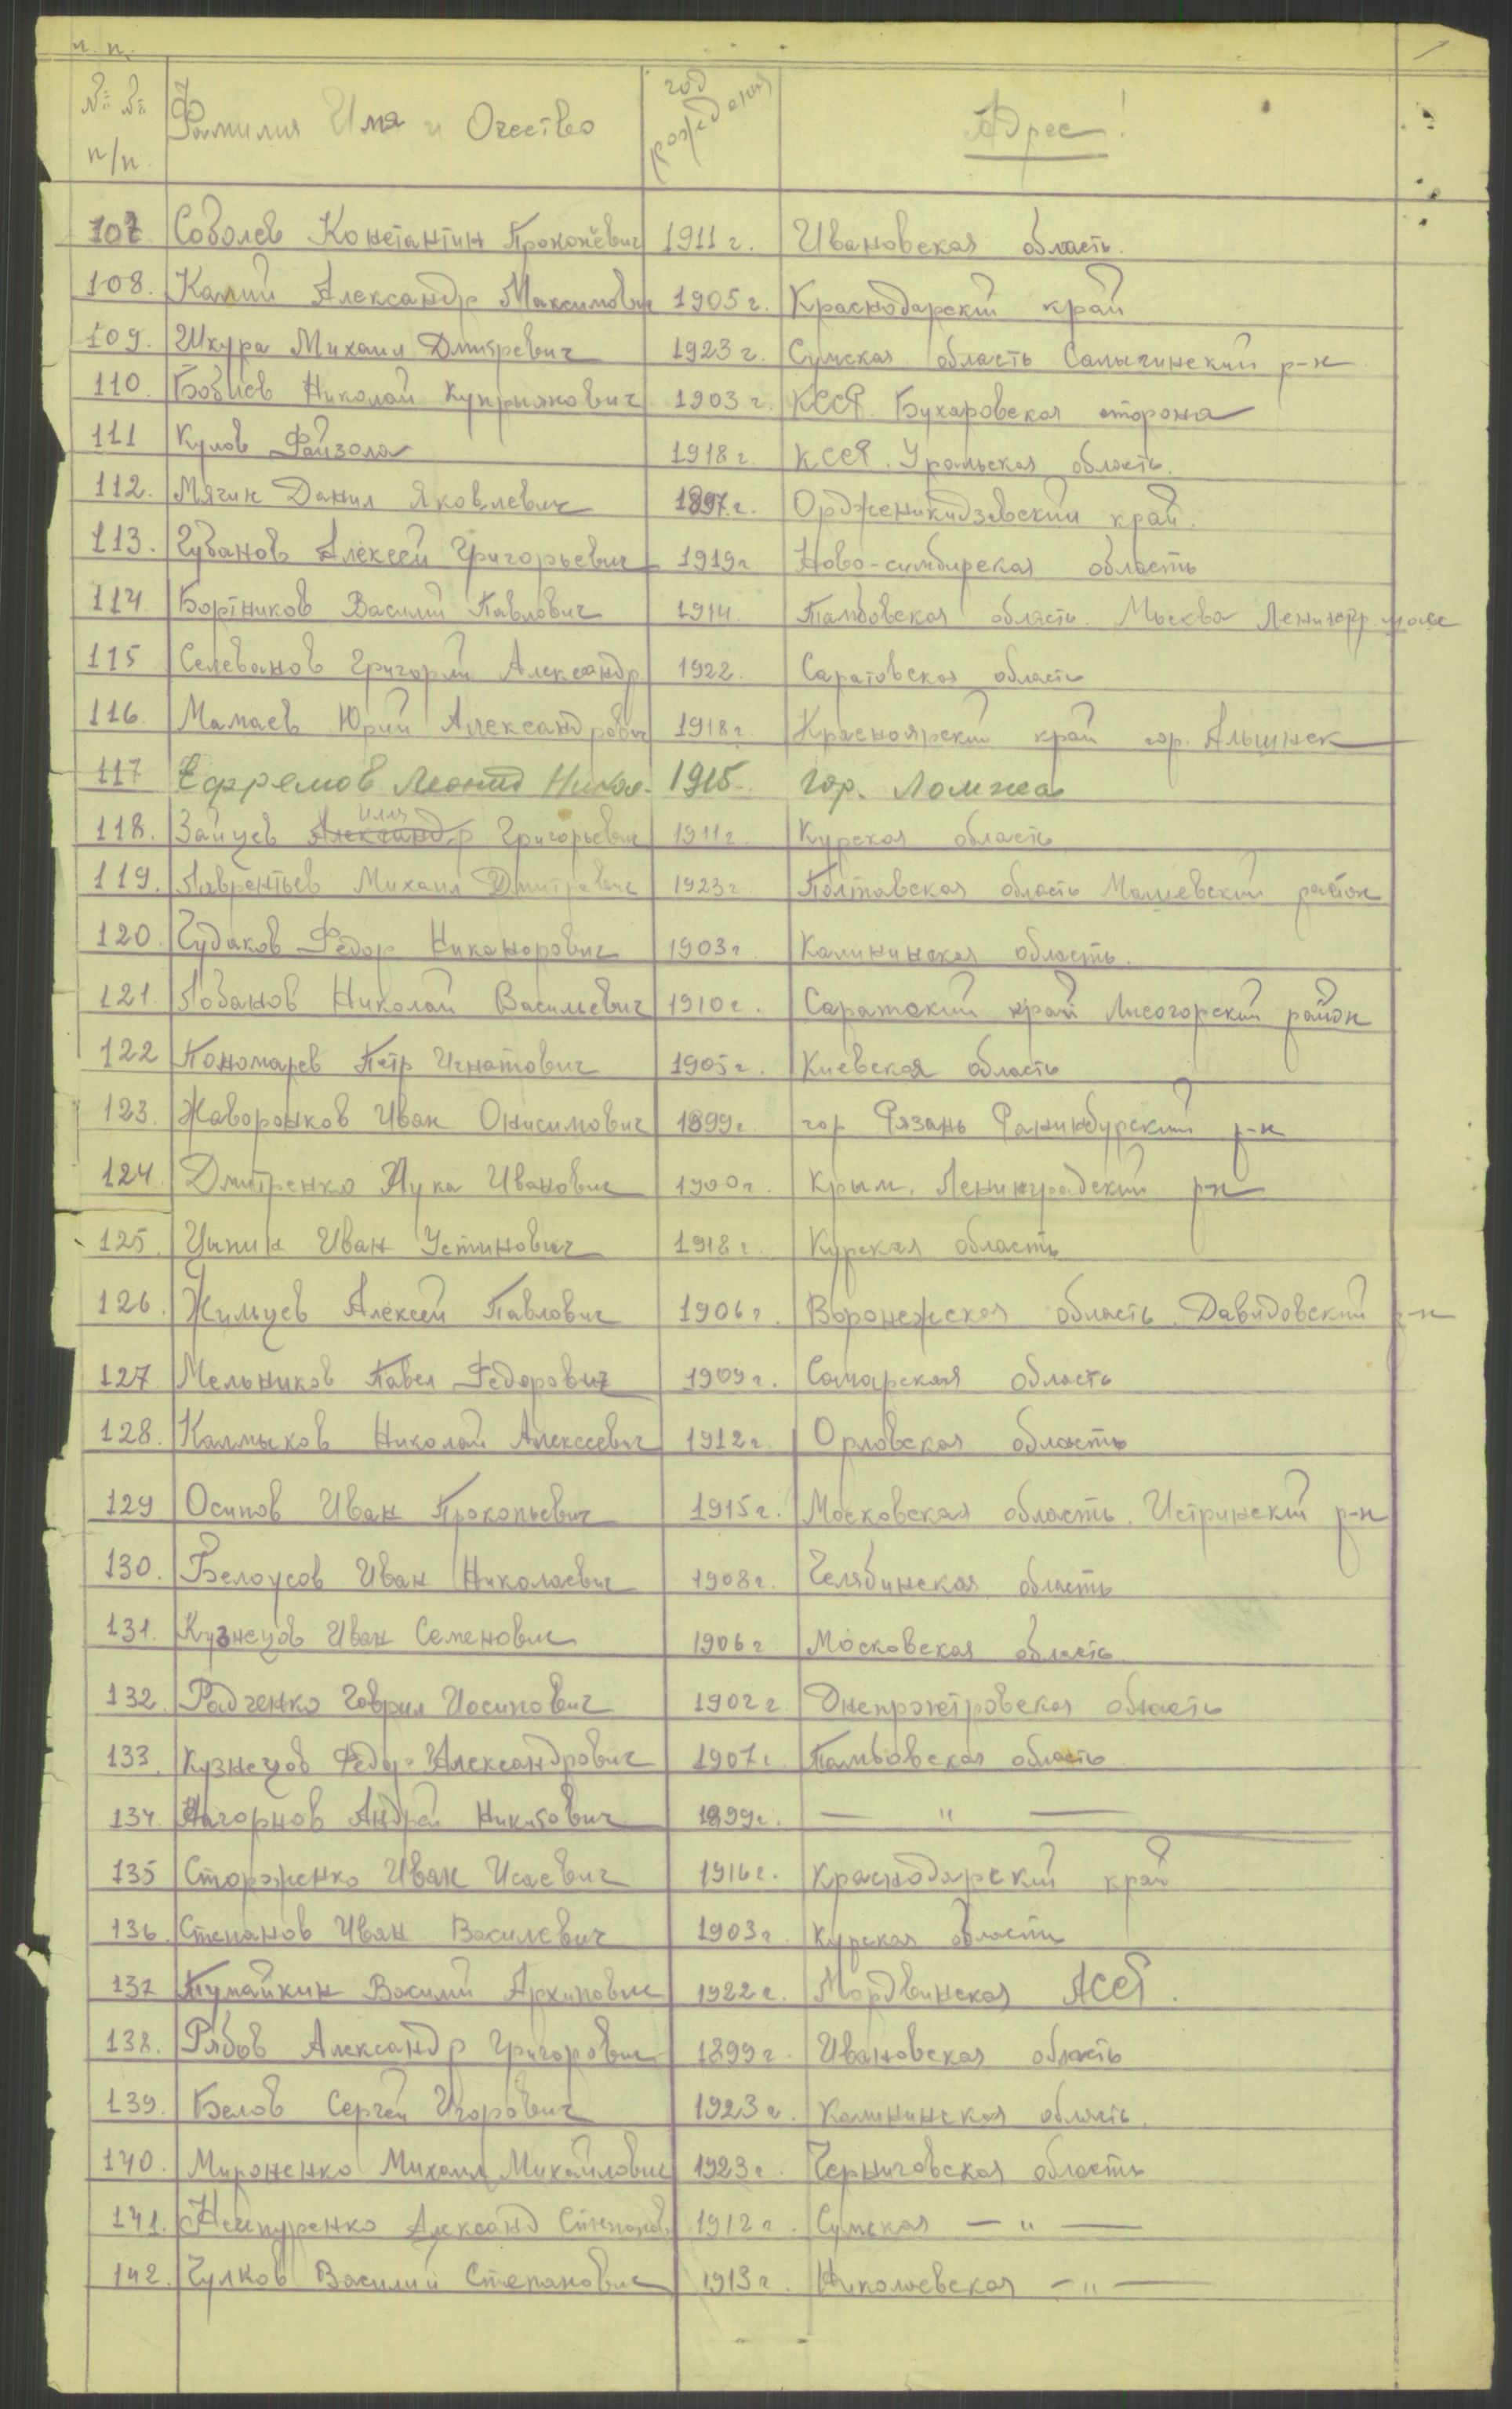 п. п.
№ № п/п. Фамилия Имя и Отчество год рождения Адрес!
107 Соболев Констант��н Прокопёвич 1911 г. Ивановская область.
108. Калий Александр Максимович 1905 г. Краснодарский край
109. Шкура Михаил Дмитревич 1923 г. Сумская область р-н
110. Николай Куприянович 1903 г. КССР. Бухаровская сторона
111 Кулов Файзола 1918 г. КССР. Уральская область.
112. Мягин Данил Яковлевич 1897 г. Орджоникидзевский край.
113. Губанов Алексей Григорьевич 1919 г Ново-симбирская область
114 Бортников Василий Павлович 1914. Тамбовская область. Москва
115 Селеванов Григорий Александр 1922. Саратовская область
116. Мамаев Юрий Александрович 1918 г. Красноярский край гор.
117 Ефремов Леонид Никол. 1915. гор. Ломжа
118. Зайцев Александр Илля Григорьевич 1911 г. Курская область
119. Лаврентьев Михаил Дмитревич 1923 г Полтавская область Машевский район
120. Чудаков Федор Никанорович 1903 г. Калининская область.
121. Лобанов Николай Васильевич 1910 г. край Лисогорский район
122 Пономарев Петр Игнатович 1905 г. Киевская область
123. Жаворонков Иван Онисимович 1899 г. гор Рязань р-н
124. Дмитренко Лука Иванович 1900 г. Крым. Ленинградский р-н
125. Цыпин Иван Устинович 1918 г. Курская область
126. Жильцев Алексей Павлович 1906 г. Воронежская область. Давидовский р-н
127. Мельников Павел Федорович 1909 г. Самарская область
128. Калмыков Николай Алексеевич 1912 г. Орловская область
129 Осипов Иван Прокопьевич 1915 г. Московская область. Истринский р-н
130. Белоусов Иван Николаевич 1908 г. Челябинская область
131. Кузнецов Иван Семенович 1906 г Московская область
132. Радченко Гаврил Иосипович 1902 г. Днепропетровская область
133. Кузнецов Федор Александрович 1907 г. Тамбовская область
134. Нагорнов Андрей Никитович 1899 г. — " —
135 Стороженко Иван Исаевич 1916 г. Краснодарский край
136. Степанов Иван Василевич 1903 г. Курская область
137 Тумайкин Василий Архипович 1922 г. Мордвинская АССР.
138. Рябов Александр Григорович 1899 г. Ивановская область
139. Белов Сергей Игорович 1923 г. Калининская область.
140. Мироненко Михаил Михайлович 1923 г. Черниговская область
141. Александ Степанов 1912 г. Сумская — " —
142. Чулков Василий Степанович 1913 г. Николаевская — " —